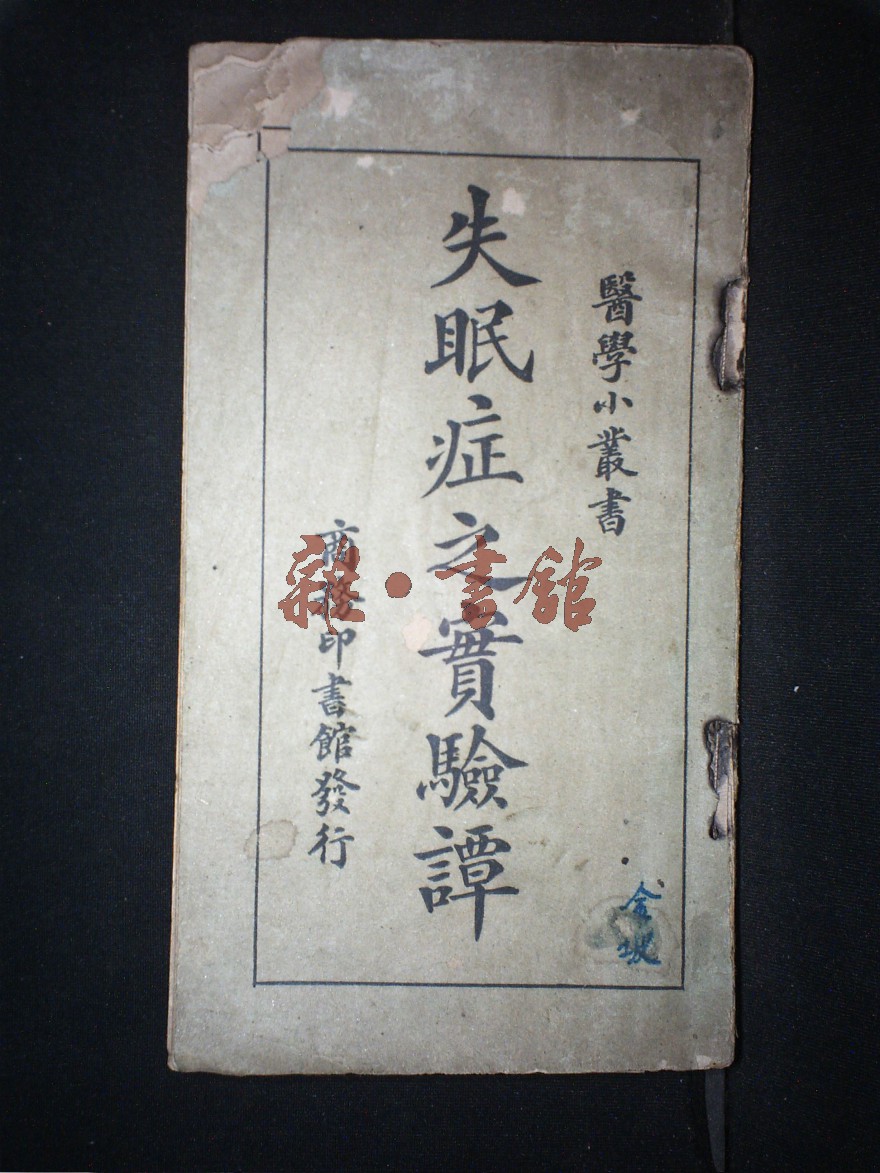 醫學小叢書
失眠症之實驗譚
商務印書館發行
金城
雜·書館